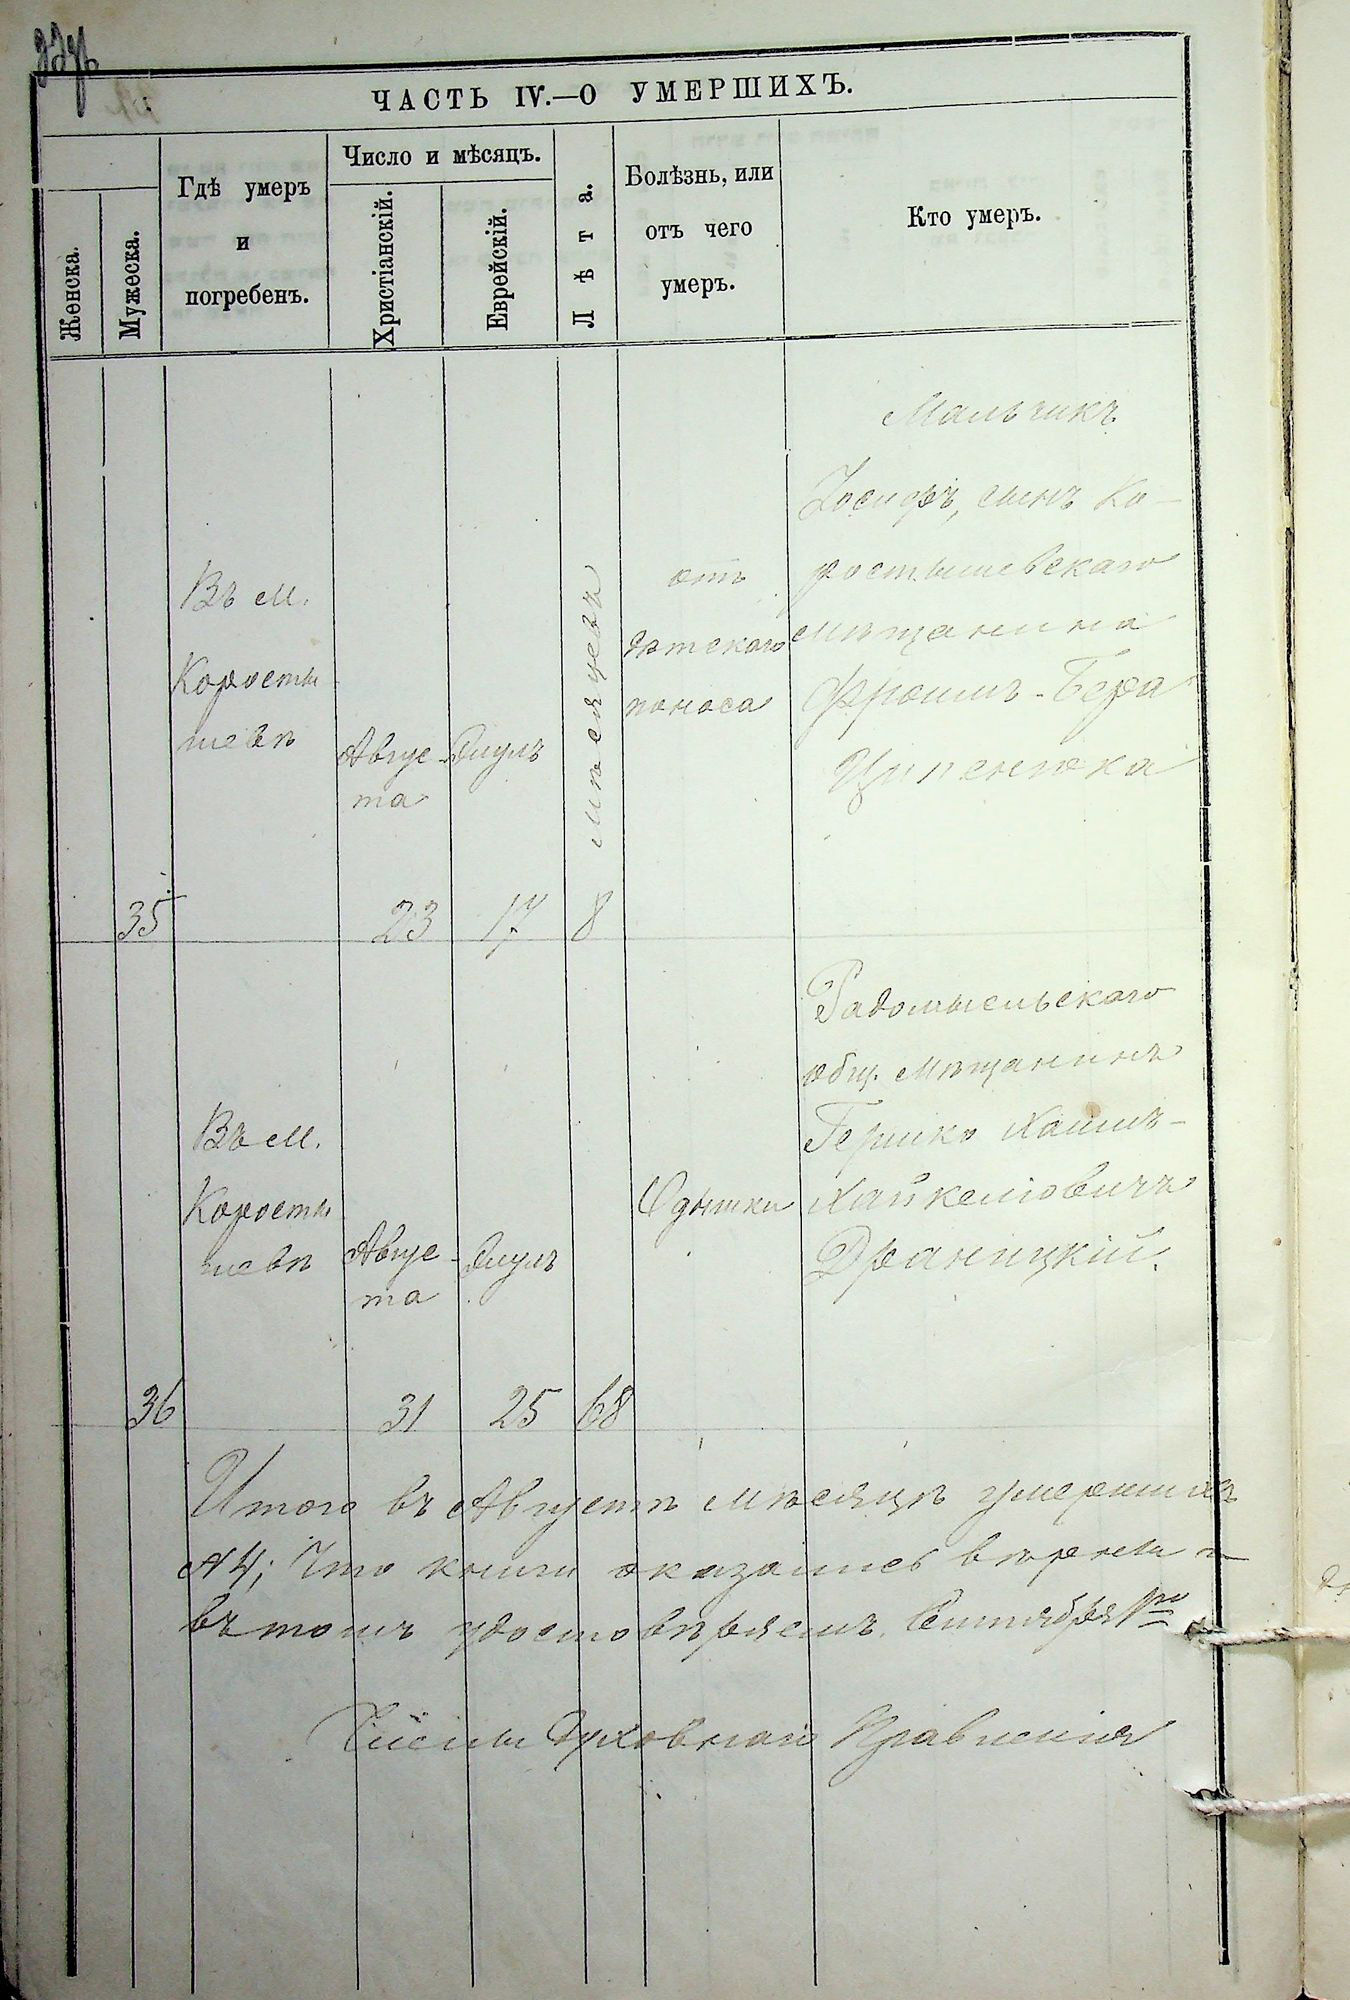 ЧАСТЬ IV.—О УМЕРШИХЪ.
Женска.
Мужеска.
Гдѣ умеръ
и
погребенъ.
Число и мѣсяцъ.
Христіанскій.
Еврейскій.
Лѣта.
Болѣзнь, или
отъ чего
умеръ.
Кто умеръ.
35
Въ м.
Коросты
шевѣ
Авгус-
та
23
Элулъ
17
мѣсяцевъ
8
отъ
дѣтскаго
поноса
Мальчикъ
Іосифъ, сынъ Ко-
ростышевскаго
мѣщанина
Фроимъ-Бера
Ципенюка
36
Въ м.
Коросты
шевѣ
Авгус-
та
31
Элулъ
25
68
Одышки
Радомысльскаго
общ. мѣщанинъ
Гершко Хаимъ-
Хайкелювичъ
Драницкій.
Итого въ Августѣ мѣсяцѣ умершихъ
4; Что книги оказались вѣрны
въ томъ удостовѣряемъ. Сентября 1го
Члены Духовнаго Правленія